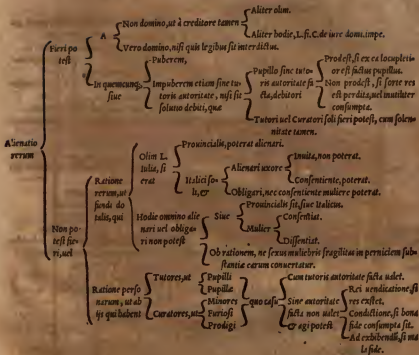 Alienatio rerum
Fieri potest
A
Non domino, ut à creditore tamen
Aliter olim.
Aliter hodie, L. si. C. de iure domi. impe.
Vero domino, nisi quis legibus sit interdictus.
In quemcunque, siue
Puberem,
Impuberem etiam sine tutoris autoritate, nisi sit solutio debiti, quæ
Pupillo sine tutoris autoritate facta, debitori
Prodest, si ex ea locupletior est factus pupillus.
Non prodest, si forte res est perdita, uel inutiliter consumpta.
Tutori uel Curatori soli fieri potest, cum solennitate tamen.
Non potest fieri, uel
Ratione rerum, ut fundi dotalis, qui
Olim L. Iulia, si erat
Prouincialis, poterat alienari.
Italici soli, &
Alienari uxore
Inuita, non poterat.
Consentiente, poterat.
Obligari, nec consentiente muliere poterat.
Hodie omnino alienari uel obligari non potest
Siue
Prouincialis sit, siue Italicus.
Mulier
Consentiat.
Dissentiat.
Ob rationem, ne sexus muliebris fragilitas in perniciem substantiæ earum conuertatur.
Ratione personarum, ut ab ijs qui habent
Tutores, ut
Pupilli
Pupillæ
Curatores, ut
Minores
Furiosi
Prodigi
quo casu
Cum tutoris autoritate facta ualet.
Sine autoritate facta non ualet & agi potest
Rei uendicatione, si res extet.
Condictione, si bona fide consumpta sit.
Ad exhibendū, si mala fide.